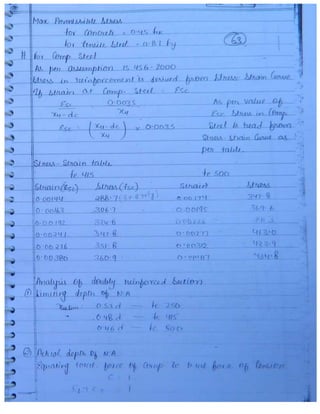 Max Permissible Stress
for Concrete = 0.45 fck
for tensile Steel = 0.87 fy
63
# for Comp Steel
As per assumption IS 456-2000
Stress in reinforcement is derived from Stress Strain Curve
If strain at Comp. Steel = Esc
Esc 0.0035
xu-dc xu
Esc = (xu-dc / xu) × 0.0035
As per value of
Esc Stress in Comp.
Steel is read from
Stress strain Curve as
per table.
Stress-Strain table
fe 415 fe 500
Strain(Esc) Stress (fsc) Strain Stress
0.00144 288.7 0.00174 347.8
0.00163 306.7 0.00195 369.6
0.00192 324.8 0.00226
0.00241 342.8 0.00277 413.0
0.00276 351.8 0.00312 423.9
0.00380 360.9 0.00417 434.8
Analysis of doubly reinforced Section
① Limiting depth of N.A
0.53 d — fe 250
0.48 d — fe 415
0.46 d — fe 500
② Actual depth of N.A
Equating total force of Comp to total force of tension